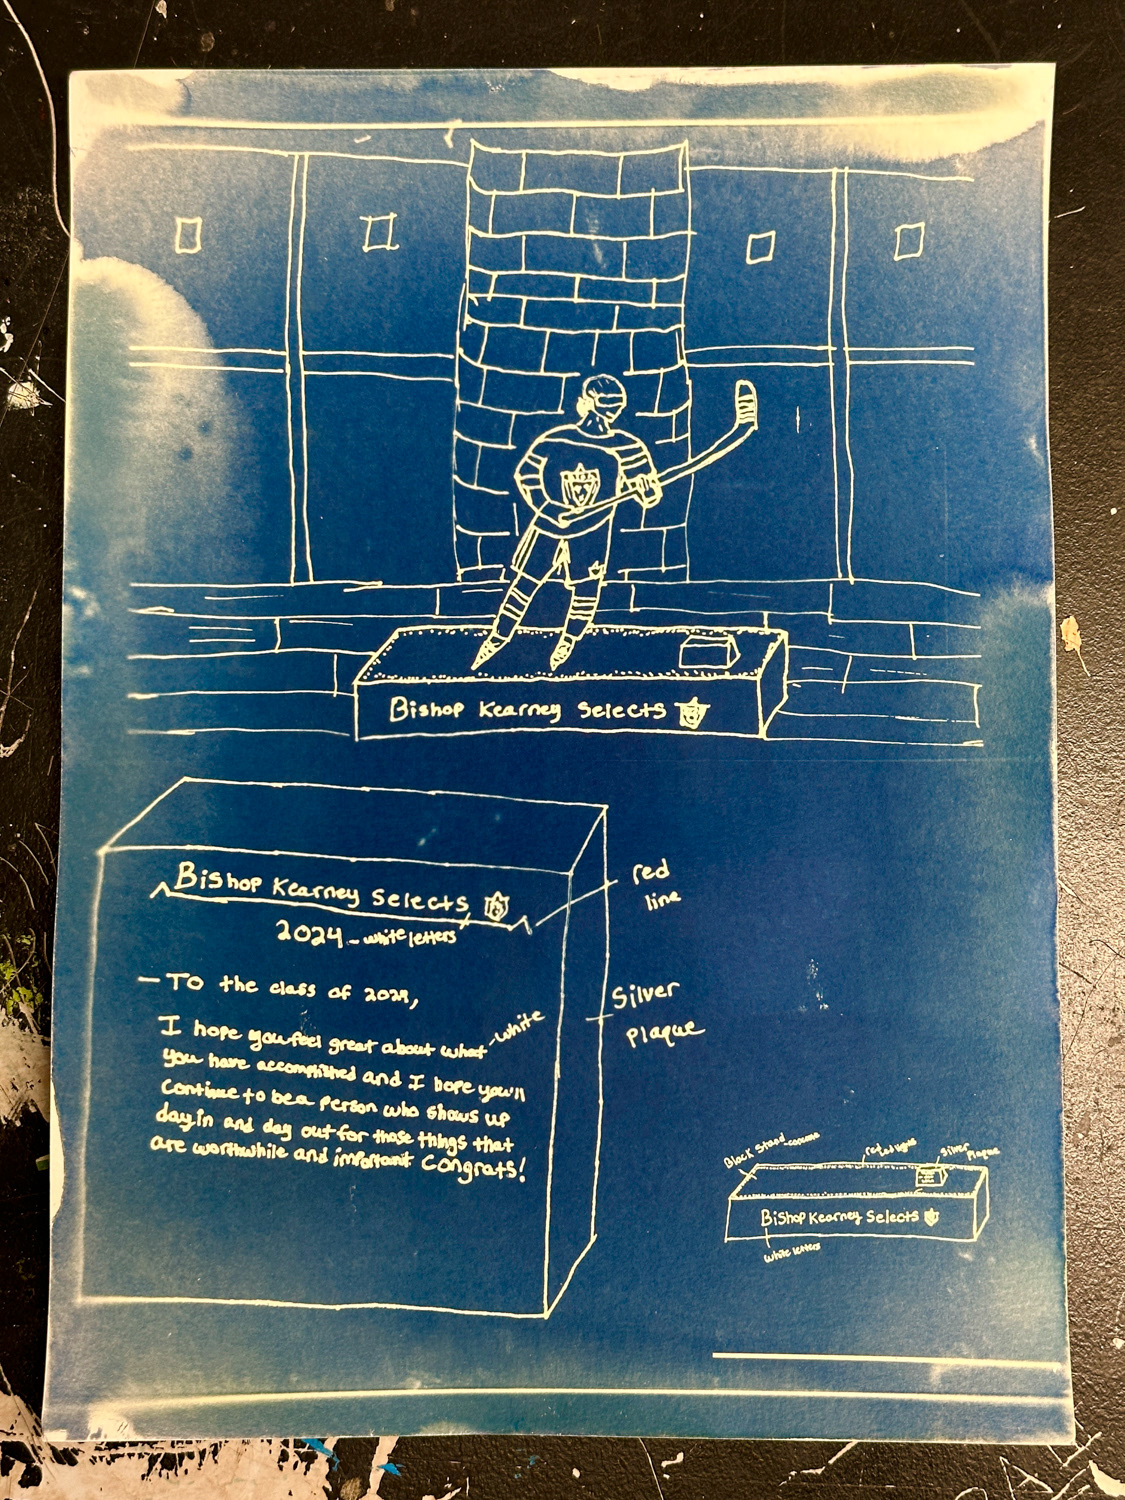 Bishop Kearney Selects
Bishop Kearney Selects
2024 - white letters
red
line
- To the class of 2024,
I hope you feel great about what - white
you have accomplished and I hope you'll
continue to be a person who shows up
day in and day out for those things that
are worthwhile and important congrats!
Silver
Plaque
Black Stand
red lights
Silver
Plaque
Bishop Kearney Selects
white letters